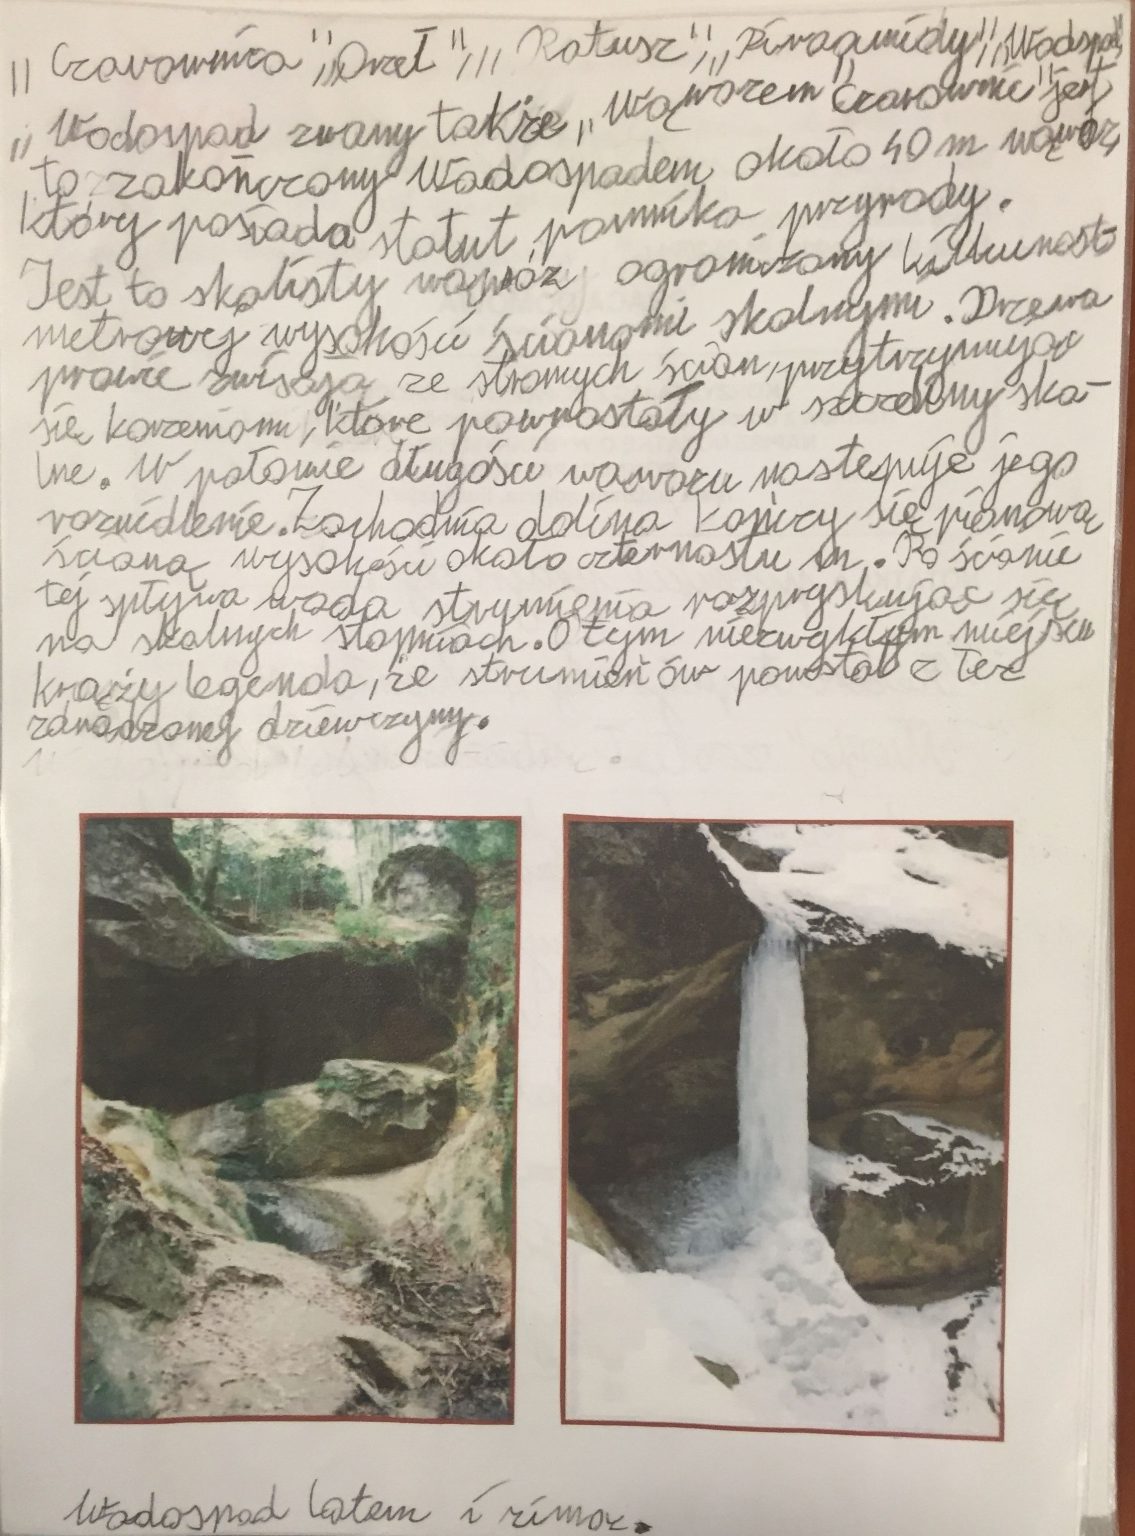 „Czarownica", „Orzeł", „Ratusz", „Piramidy", „Wodospad,
„Wodospad zwany także „Wąwozem Czarownic" jest
to zakończony Wodospadem około 40 m wąwóz,
który posiada statut pomnika przyrody.
Jest to skalisty wąwóz ograniczony kilkunasto
metrowej wysokości ścianami skalnymi. Drzewa
prawie zwisają ze stromych ścian, przytrzymując
się korzeniami, które powrastały w szczeliny ska-
lne. W połowie długości wąwozu następuje jego
rozwidlenie. Zachodnia dolina kończy się pionową
ścianą wysokości około czternastu m. Po ścianie
tej spływa woda strumienia rozpryskując się
na skalnych stopniach. O tym niezwykłym miejscu
krąży legenda, że strumień ów powstał z łez
zdradzonej dziewczyny.
Wodospad latem i zimą.